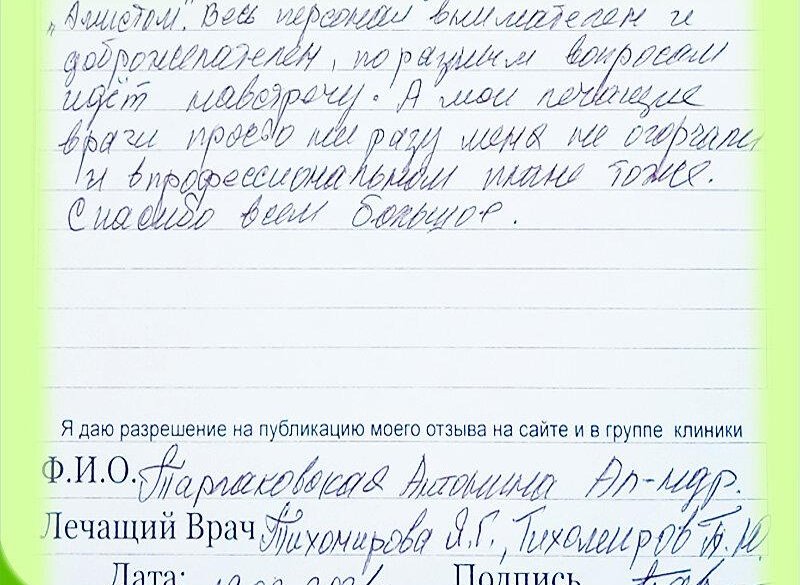 „Алистом". Весь персонал внимателен и
доброжелателен, по разным вопросам
идёт навстречу. А мои лечащие
врачи просто ни разу меня не огорчали
и в профессиональном плане тоже.
Спасибо всем большое.
Я даю разрешение на публикацию моего отзыва на сайте и в группе клиники
Ф.И.О. Антонина Ал-ндр.
Лечащий Врач Тихомирова Я.Г., Тихомиров
Дата: Подпись